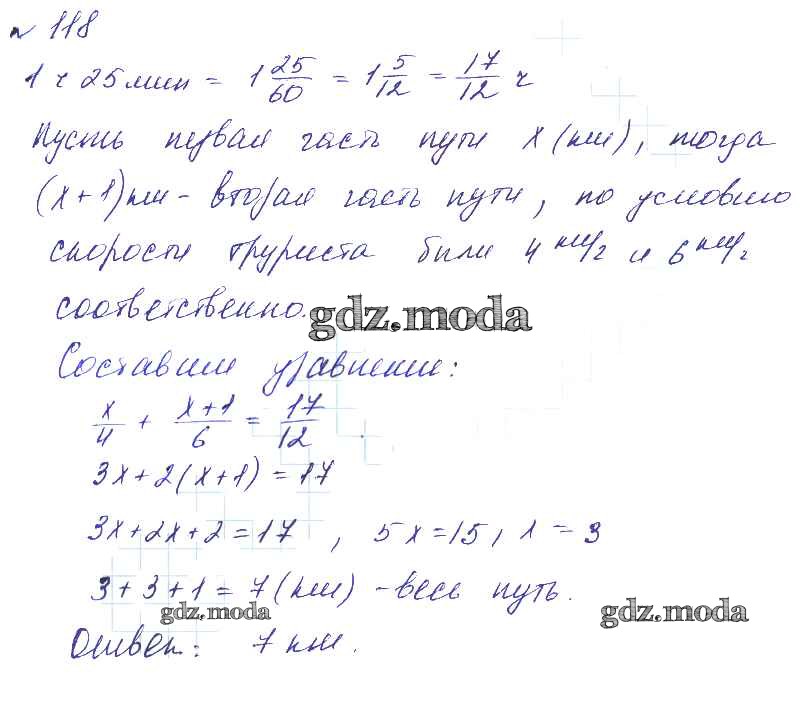 № 118
1 ч 25 мин = 1 25/60 = 1 5/12 = 17/12 ч
Пусть первая часть пути x (км), тогда
(x+1) км - вторая часть пути, по условию
скорости туриста были 4 км/ч и 6 км/ч
соответственно.
gdz.moda
Составим уравнение:
x/4 + (x+1)/6 = 17/12
3x+2(x+1)=17
3x+2x+2=17, 5x=15, x=3
3+3+1=7 (км) - весь путь.
gdz.moda
gdz.moda
Ответ: 7 км.